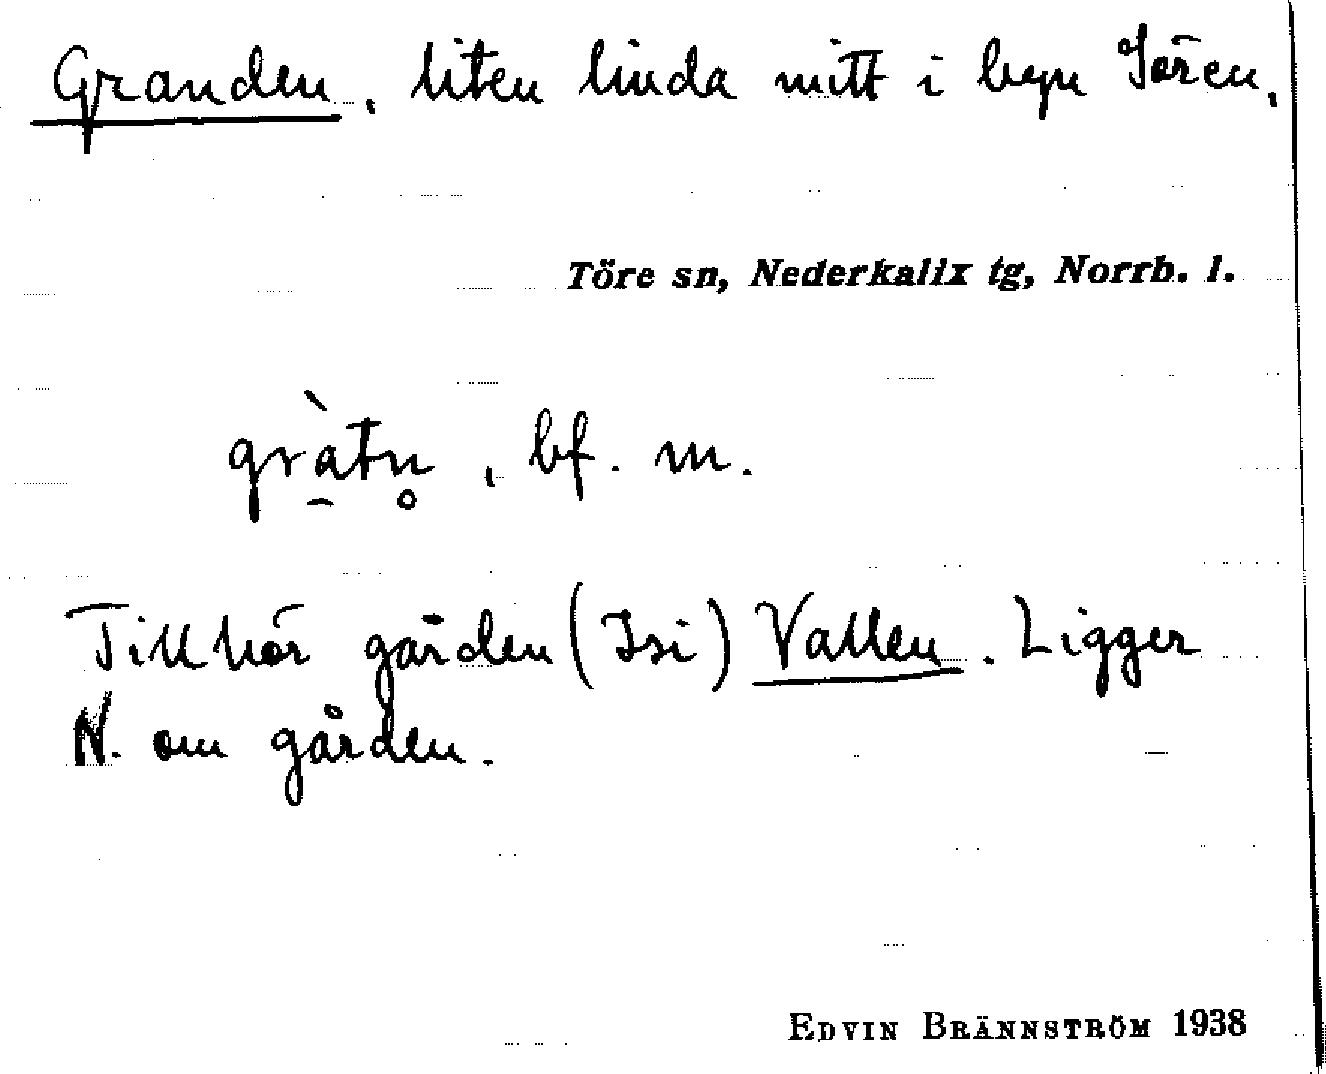 Granden, liten linda mitt i byn Sören,
Töre sn, Nederkalix tg, Norrb. l.
grà̱tn̥, bf. m.
Tillhör gården (Isi) Vallen. Ligger
N. om gården.
EDVIN BRÄNNSTRÖM 1938